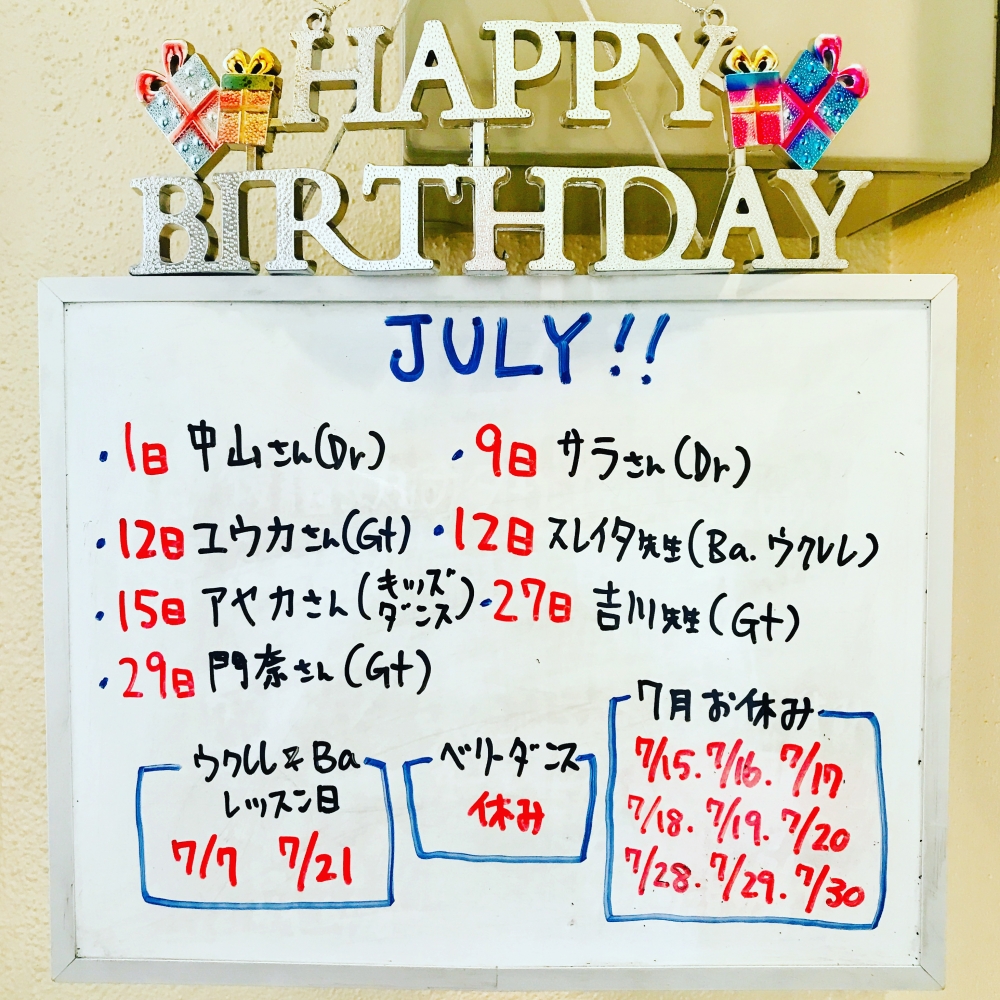 HAPPY
BIRTHDAY
JULY!!
・1日 中山さん(Dr) ・9日 サラさん(Dr)
・12日 ユウカさん(Gt) ・12日 スレイタ先生(Ba. ウクレレ)
・15日 アヤカさん(キッズダンス) ・27日 吉川先生(Gt)
・29日 門奈さん(Gt)
ウクレレ & Ba
レッスン日
7/7 7/21
ベリーダンス
休み
7月お休み
7/15. 7/16. 7/17
7/18. 7/19. 7/20
7/28. 7/29. 7/30